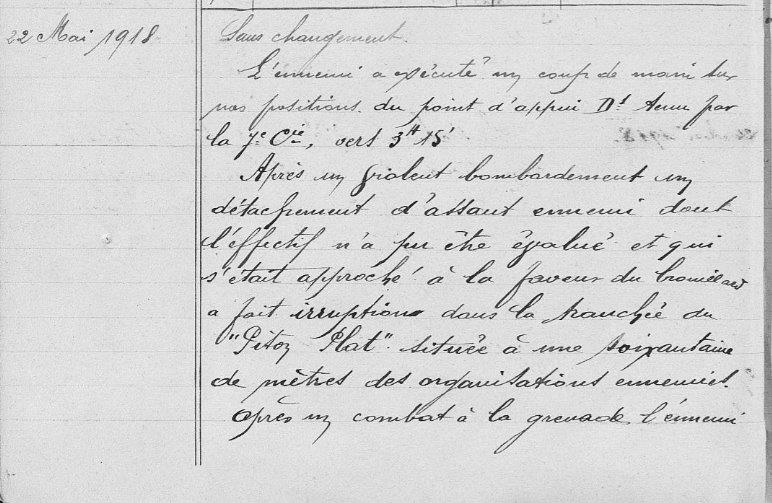 22 Mai 1918
Sans changement.
L'ennemi a exécuté un coup de main sur
nos positions du point d'appui Dt tenu par
la 7e Cie, vers 3H 15'
Après un violent bombardement un
détachement d'assaut ennemi dont
l'effectif n'a pu être évalué et qui
s'était approché à la faveur du brouillard
a fait irruption dans la tranchée du
"Piton Plat" située à une soixantaine
de mètres des organisations ennemies.
Après un combat à la grenade l'ennemi